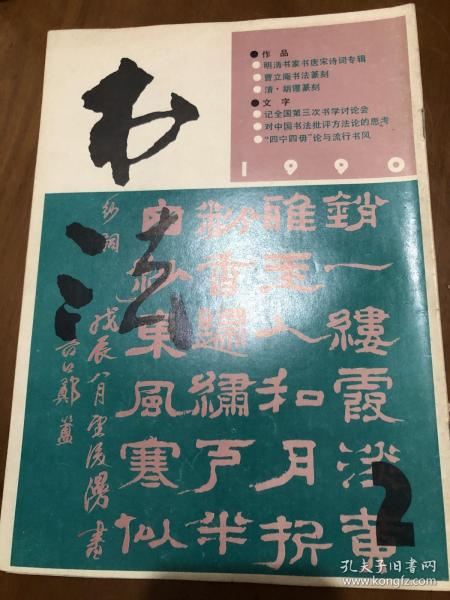 书法
●作品
●明清书家书唐宋诗词专辑
●曹立庵书法篆刻
●清·胡钁篆刻
●文字
●记全国第三次书学讨论会
●对中国书法批评方法论的思考
●“四宁四毋”论与流行书风
1990
销一缕霞淡黄
谁玉人和月折
粉香归绣户半
东风寒似
戊辰八月
书
2
孔夫子旧书网
www.kongfz.com